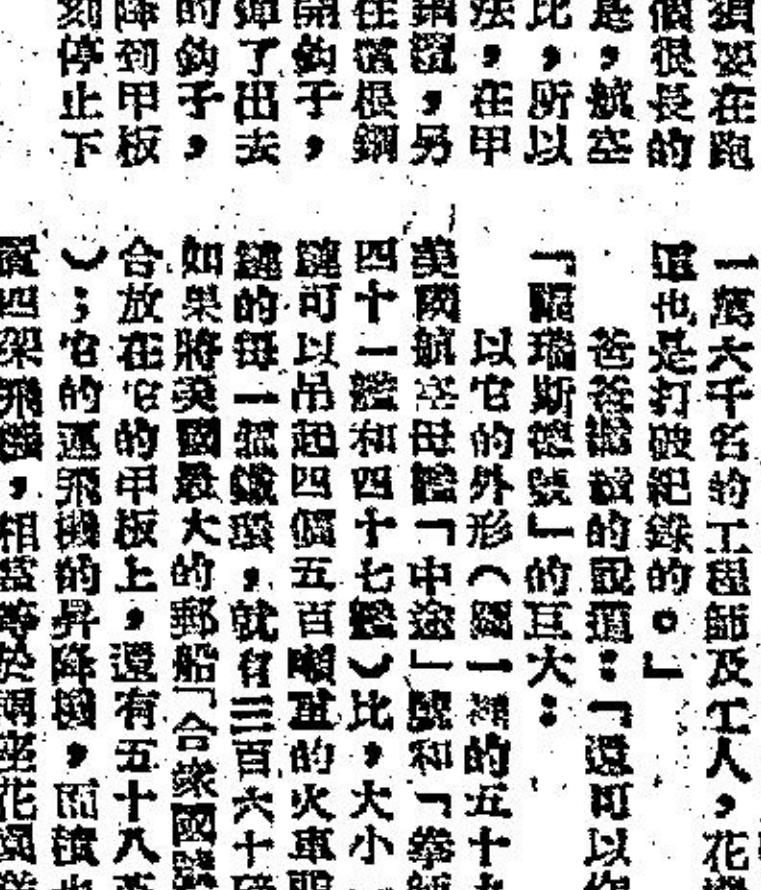 須要在跑
個很長的
是，航空
比，所以
法，在甲
，另
在這根鋼
開鈎子，
彈了出去
的鈎子，
降到甲板
刻停止下
一萬六千名的工程師及工人，花
這也是打破紀錄的。」
爸爸繼續的說道：「還可以
「福瑞斯德號」的巨大：
以它的外形（圖一裡的五十九
美國航空母艦「中途」號和「拳師
四十一艦和四十七艦）比，大小
鏈可以吊起四個五百噸重的火車
鏈的每一個鐵環，就有三百六十磅
如果將美國最大的郵船「合衆國號
合放在它的甲板上，還有五十八
）；它的運飛機的昇降機，而這也
置四架飛機，相當等於兩座花園